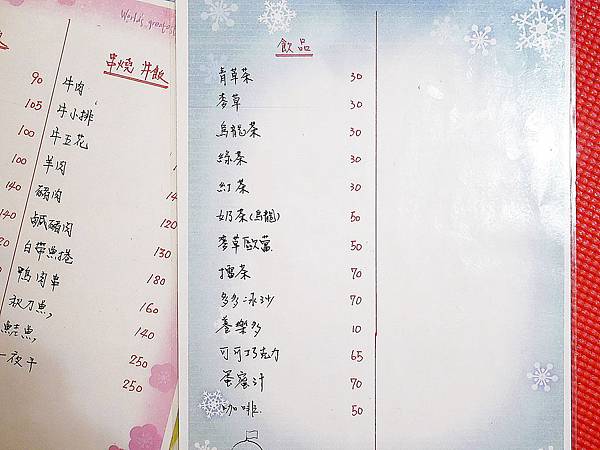 World's greatest
串燒 丼飯
90 牛肉
105 牛小排
100 牛五花
100 羊肉
140 豬肉 14
140 鹹豬肉 120
20 白帶魚捲 130
鴨肉串 180
秋刀魚 160
鮭魚 140
一夜干 250
250
飲品
青草茶 30
麥草 30
烏龍茶 30
綠茶 30
紅茶 30
奶茶(烏龍) 50
麥草歐蕾 50
擂茶 70
多多冰沙 70
養樂多 10
可可巧克力 65
蛋蜜汁 70
咖啡 50